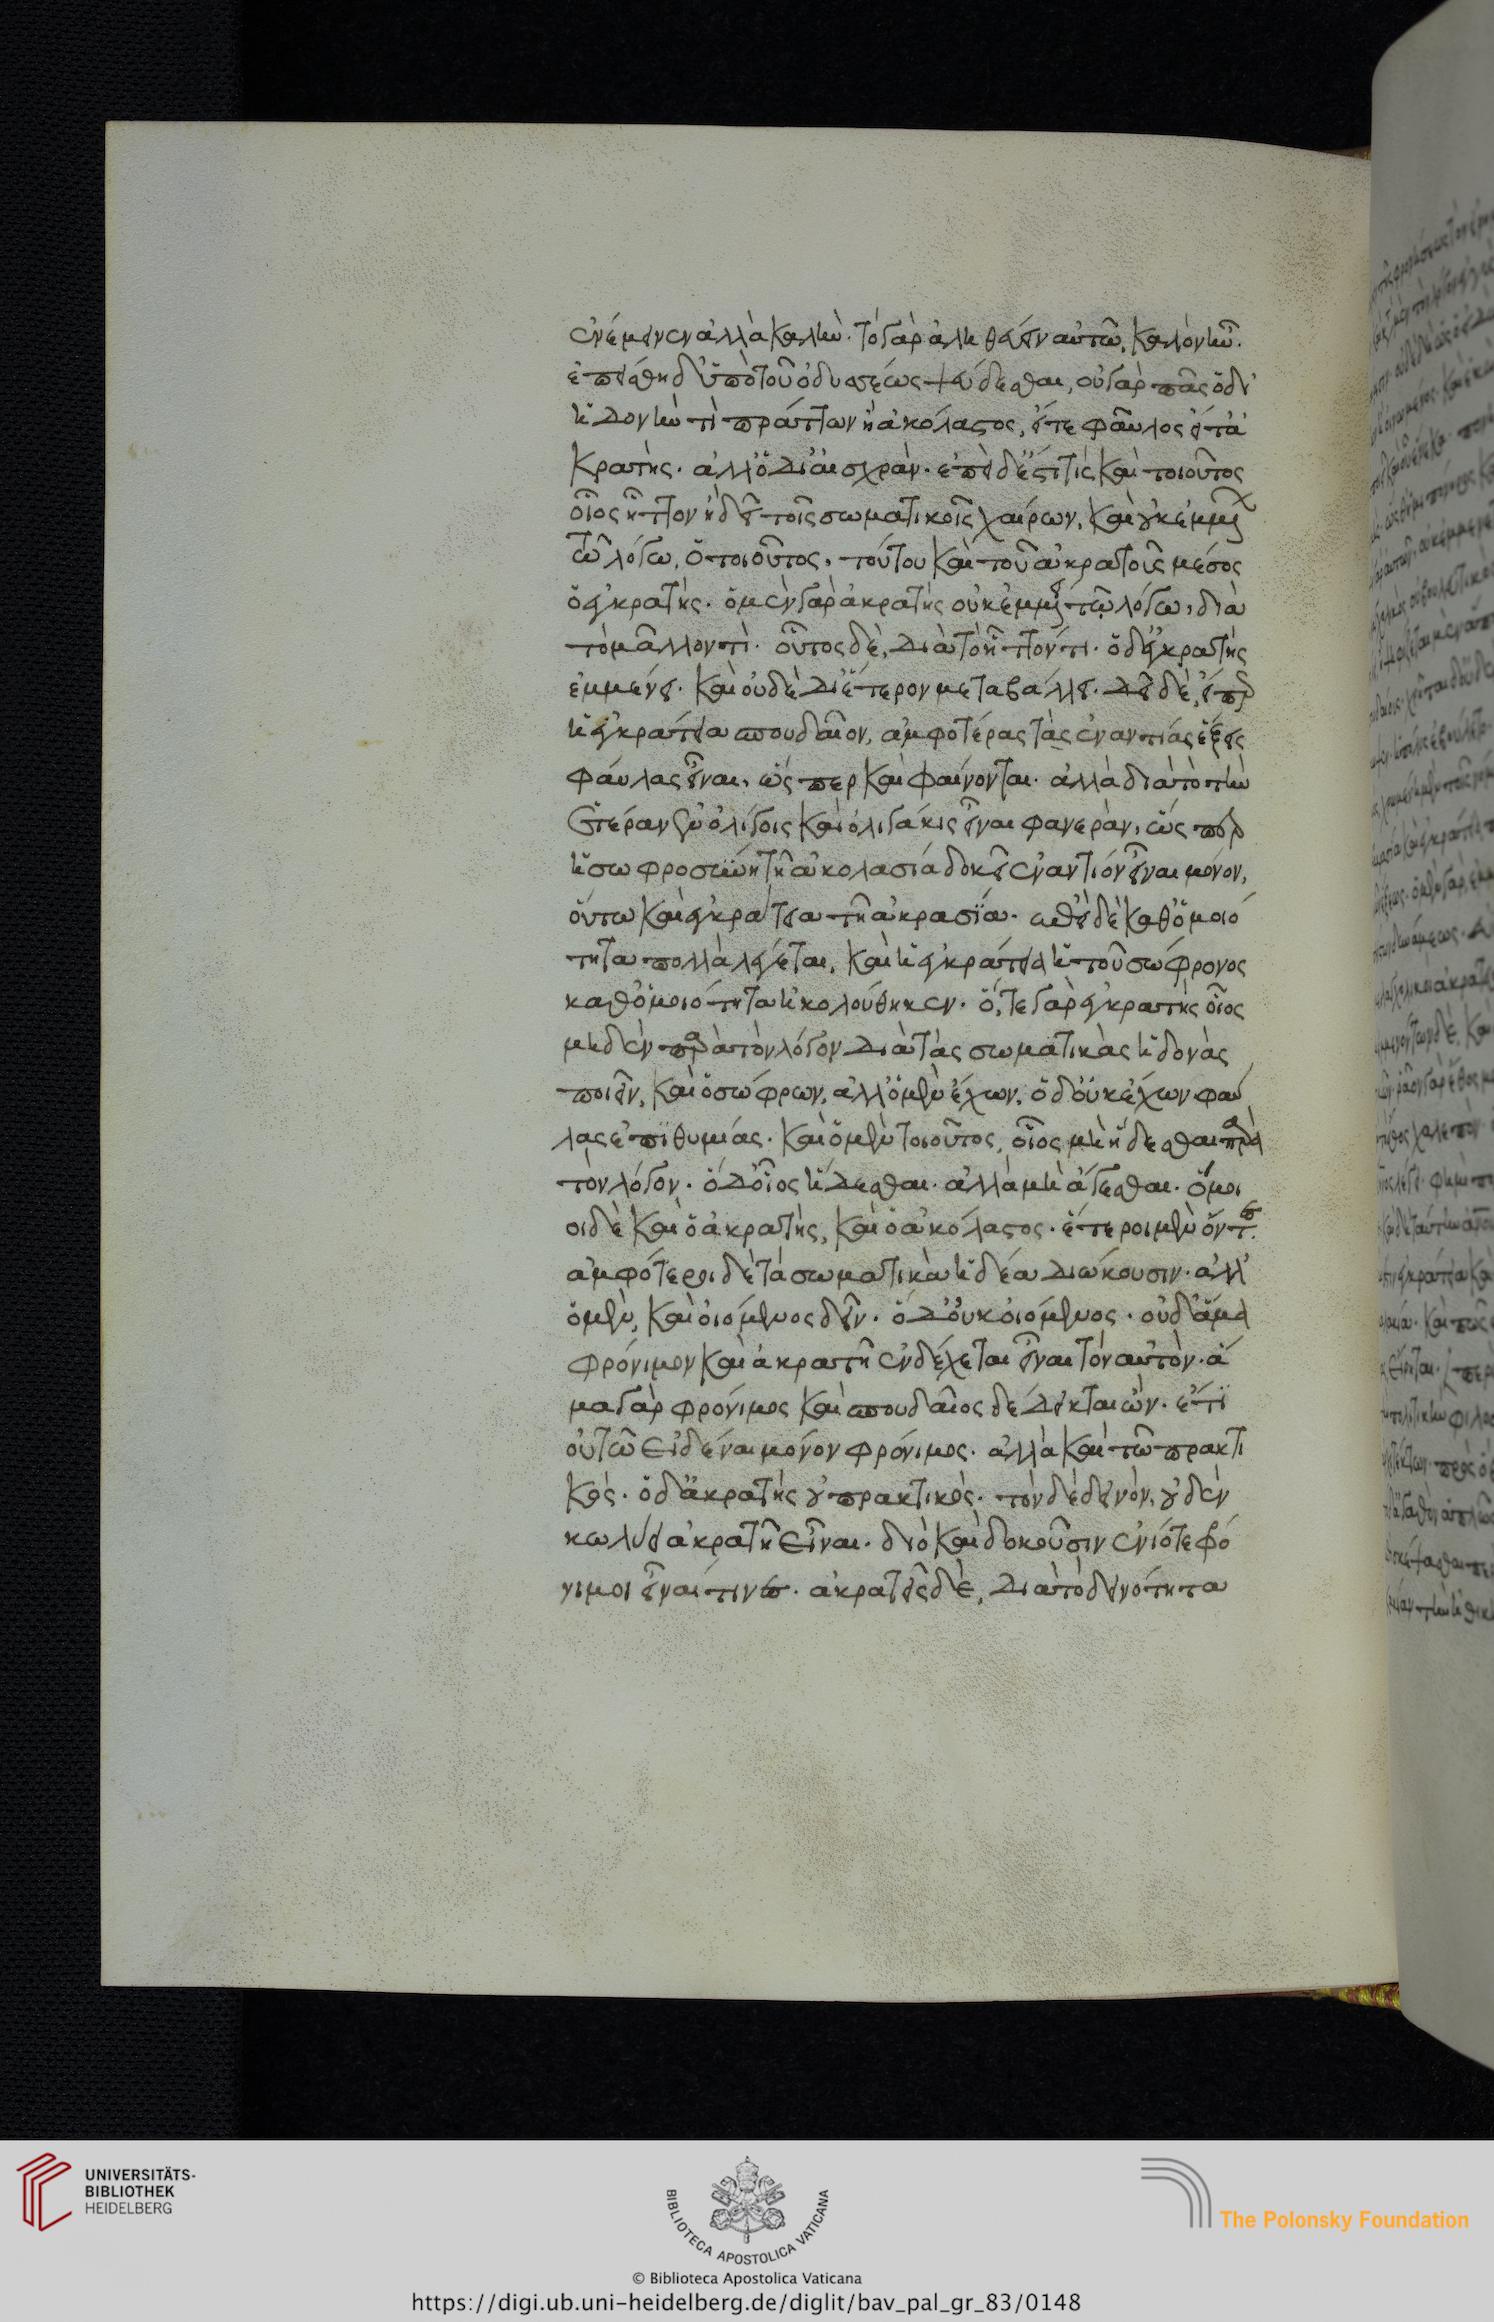 ἐνέμεινεν ἀλλὰ καλήν. τὸ γὰρ ἀληθεύειν αὐτῶ, καλὸν ἦν.
ἐπείσθη δ' ὑπὸ τοῦ ὀδυσσέως ψεύδεσθαι, οὐ γὰρ πᾶς ὁ δι'
ἡδονήν τι πράττων ἢ ἀκόλαστος, εἴτε φαῦλος εἴτ' ἀ
κρατής. ἀλλ' ὁ δι' αἰσχράν. ἐπεὶ δ' ἔστι τίς καὶ τοιοῦτος
οἷος ἧττον ἢ δεῖ τοῖς σωματικοῖς χαίρων, καὶ οὐκ ἐμμένων
τῶ λόγω, ὁ τοιοῦτος, τούτου καὶ τοῦ ἀκρατοῦς μέσος
ὁ ἐγκρατής. ὁ μὲν γὰρ ἀκρατὴς οὐκ ἐμμένει τῶ λόγω, διὰ
τὸ μᾶλλόν τι. οὗτος δὲ, διὰ τὸ ἧττόν τι. ὁ δ' ἐγκρατὴς
ἐμμένει. καὶ οὐδὲ δι' ἕτερον μεταβάλλει. δεῖ δὲ, εἴπερ
ἡ ἐγκράτεια σπουδαῖον, ἀμφοτέρας τὰς ἐναντίας ἕξεις
φαύλας εἶναι, ὥσπερ καὶ φαίνονται. ἀλλὰ διὰ τὸ τὴν
ἑτέραν ἐν ὀλίγοις καὶ ὀλιγάκις εἶναι φανεράν, ὥσπερ
ἡ σωφροσύνη τῆ ἀκολασία δοκεῖ ἐναντίον εἶναι μόνον,
οὕτω καὶ ἐγκράτεια τῆ ἀκρασία. ἐπεὶ δὲ καθ' ὁμοιό
τητα πολλὰ λέγεται, καὶ ἡ ἐγκράτεια ἡ τοῦ σώφρονος
καθ' ὁμοιότητα ἠκολούθηκεν. ὅ,τε γὰρ ἐγκρατὴς οἷος
μηδὲν παρὰ τὸν λόγον διὰ τὰς σωματικὰς ἡδονὰς
ποιεῖν, καὶ ὁ σώφρων, ἀλλ' ὁ μὲν ἔχων, ὁ δ' οὐκ ἔχων φαύ
λας ἐπιθυμίας. καὶ ὁ μὲν τοιοῦτος, οἷος μὴ ἥδεσθαι παρὰ
τὸν λόγον. ὁ δ' οἷος ἥδεσθαι. ἀλλὰ μὴ ἄγεσθαι. ὅμοι
οι δὲ καὶ ὁ ἀκρατής, καὶ ὁ ἀκόλαστος. ἕτεροι μὲν ὄντες.
ἀμφότεροι δὲ τὰ σωματικὰ ἡδέα διώκουσιν. ἀλλ'
ὁ μὲν, καὶ οἰόμενος δεῖν. ὁ δ' οὐκ οἰόμενος. οὐδ' ἅμα
φρόνιμον καὶ ἀκρατῆ ἐνδέχεται εἶναι τὸν αὐτόν. ἅ
μα γὰρ φρόνιμος καὶ σπουδαῖος δέδεικται ὤν. ἔτι
οὐ τῶ εἰδέναι μόνον φρόνιμος. ἀλλὰ καὶ τῶ πρακτι
κός. ὁ δ' ἀκρατὴς οὐ πρακτικός. τὸν δὲ δεινόν, οὐδὲν
κωλύει ἀκρατῆ εἶναι. διὸ καὶ δοκοῦσιν ἐνίοτε φρό
νιμοι εἶναί τινες. ἀκρατεῖς δὲ, διὰ τὸ δεινότητα
UNIVERSITÄTS-
BIBLIOTHEK
HEIDELBERG
BIBLIOTECA APOSTOLICA VATICANA
The Polonsky Foundation
© Biblioteca Apostolica Vaticana
https://digi.ub.uni-heidelberg.de/diglit/bav_pal_gr_83/0148